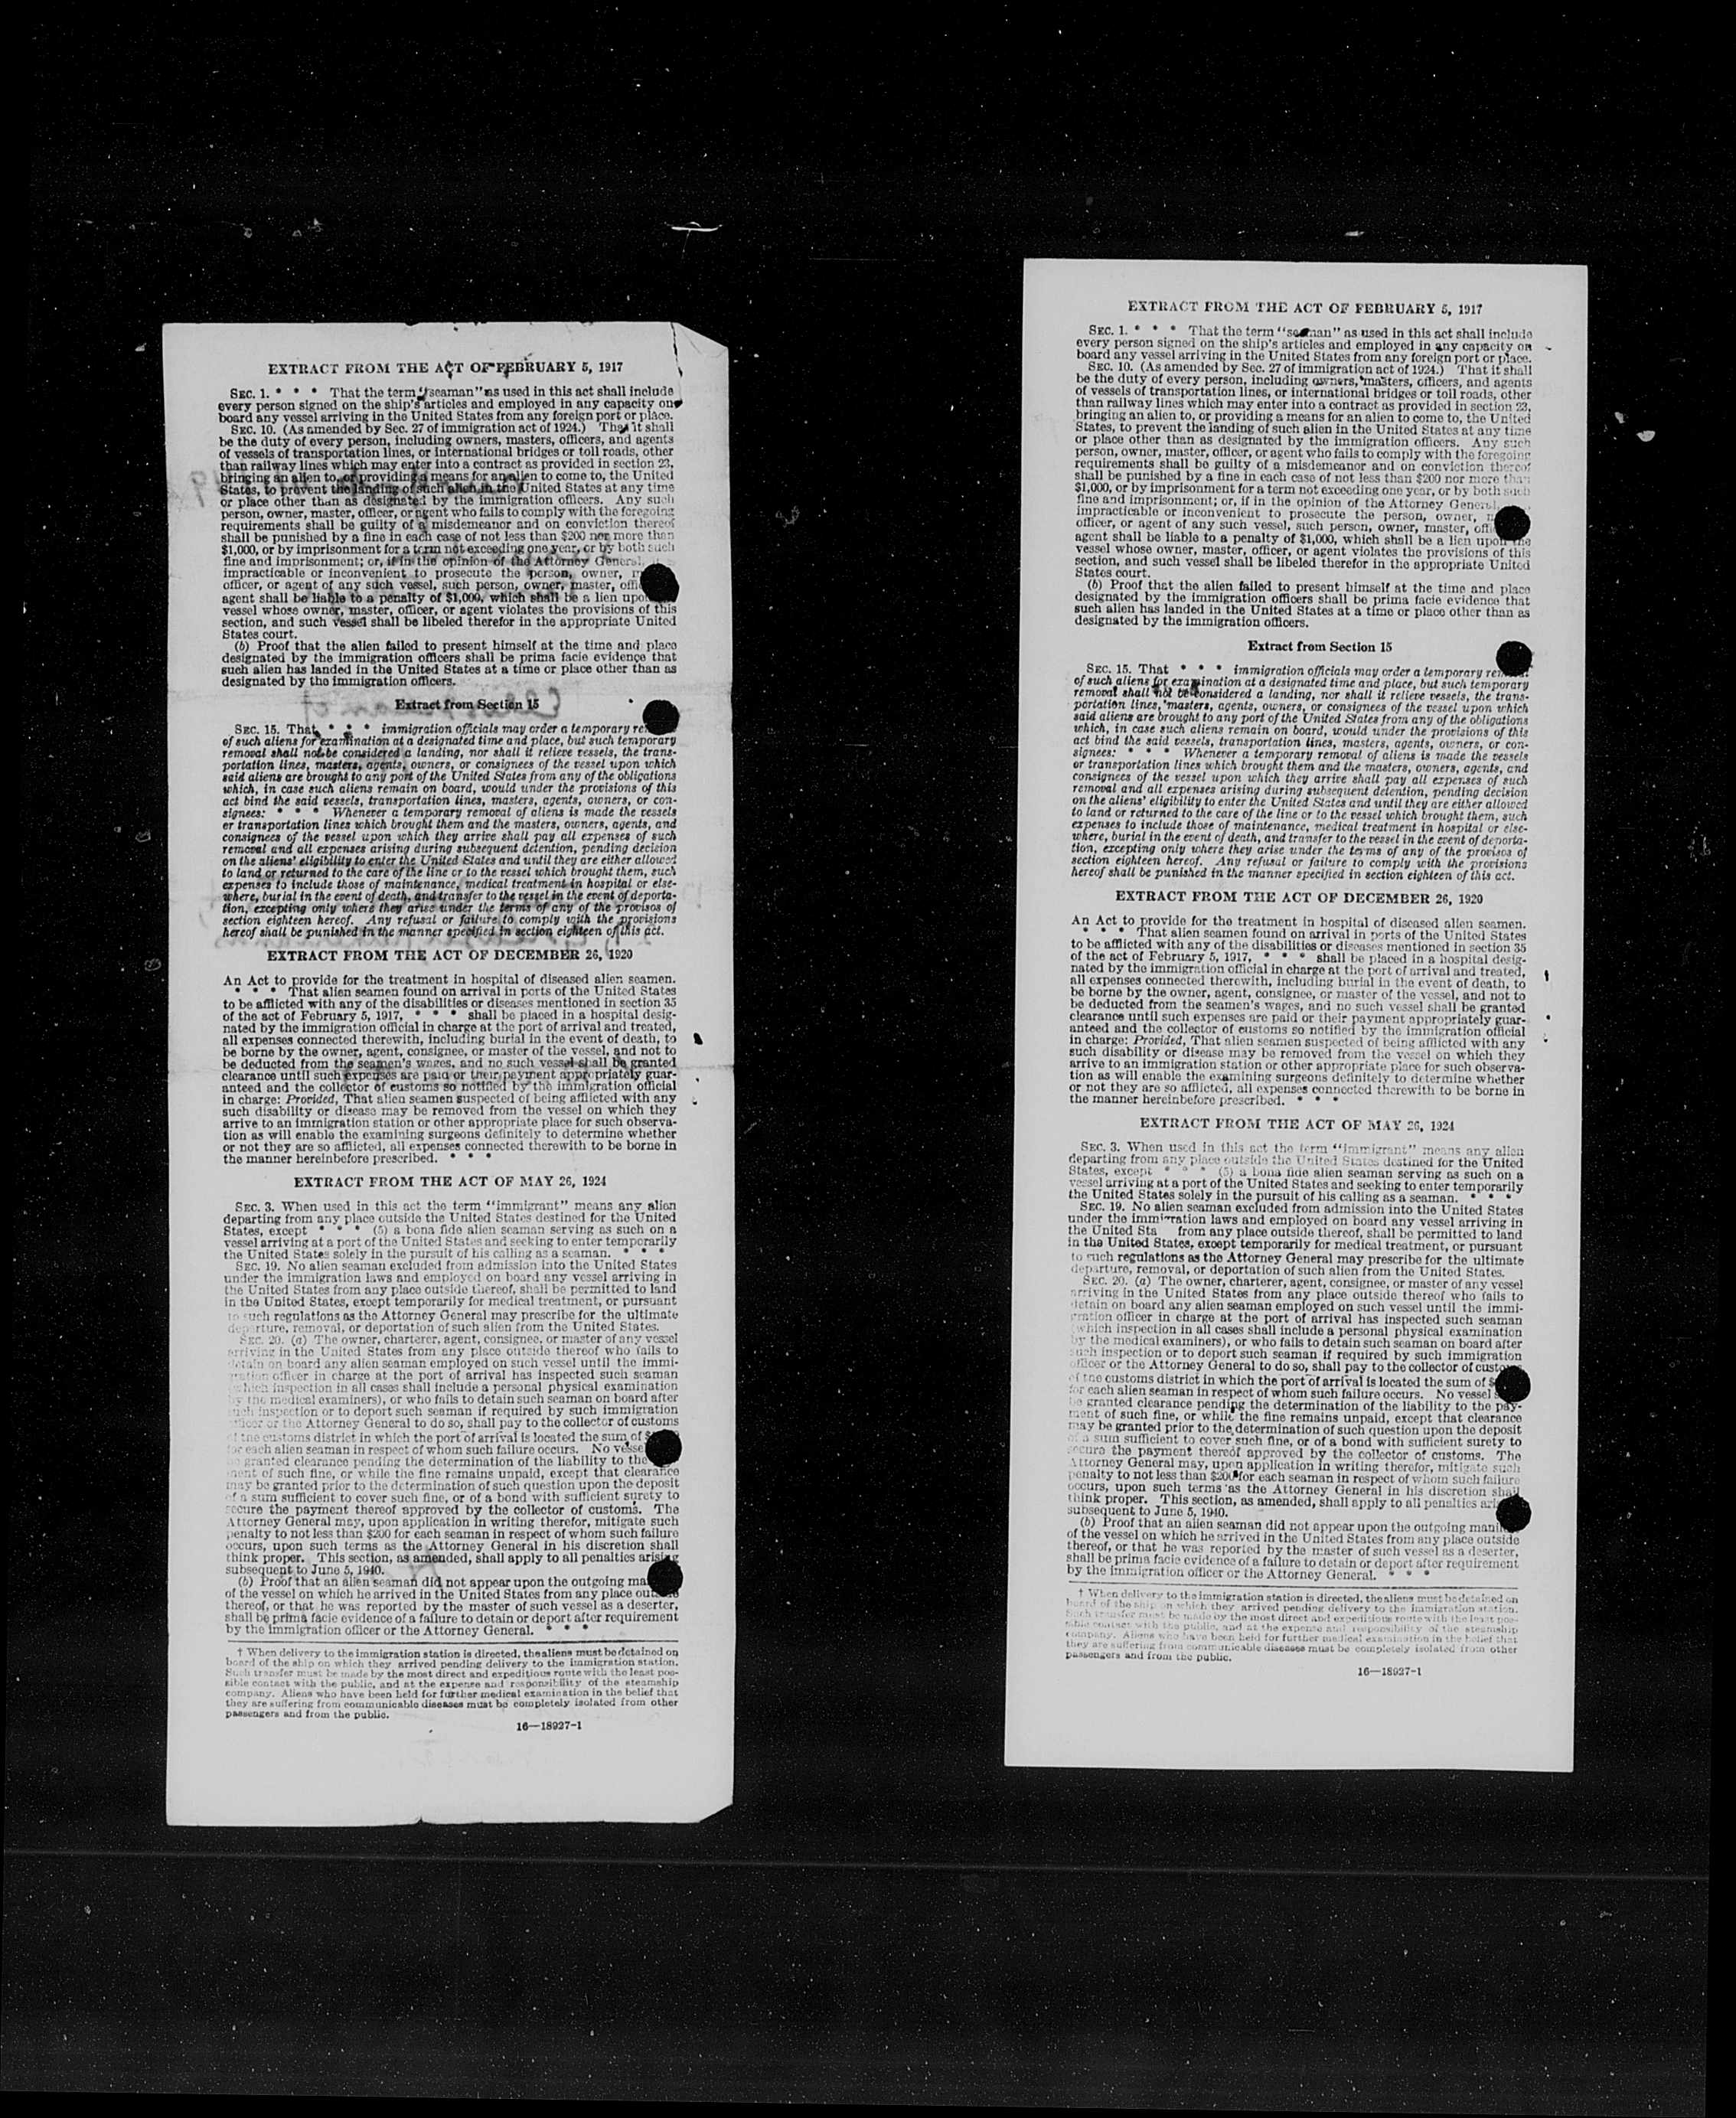 EXTRACT FROM THE ACT OF FEBRUARY 5, 1917
SEC. 1. * * * That the term "seaman" as used in this act shall include
every person signed on the ship's articles and employed in any capacity on
board any vessel arriving in the United States from any foreign port or place.
SEC. 10. (As amended by Sec. 27 of immigration act of 1924.) That it shall
be the duty of every person, including owners, masters, officers, and agents
of vessels of transportation lines, or international bridges or toll roads, other
than railway lines which may enter into a contract as provided in section 23,
bringing an alien to, or providing a means for an alien to come to, the United
States, to prevent the landing of such alien in the United States at any time
or place other than as designated by the immigration officers. Any such
person, owner, master, officer, or agent who fails to comply with the foregoing
requirements shall be guilty of a misdemeanor and on conviction thereof
shall be punished by a fine in each case of not less than $200 nor more than
$1,000, or by imprisonment for a term not exceeding one year, or by both such
fine and imprisonment; or, if in the opinion of the Attorney General,
impracticable or inconvenient to prosecute the person, owner,
officer, or agent of any such vessel, such person, owner, master,
agent shall be liable to a penalty of $1,000, which shall be a lien upon
vessel whose owner, master, officer, or agent violates the provisions of this
section, and such vessel shall be libeled therefor in the appropriate United
States court.
(b) Proof that the alien failed to present himself at the time and place
designated by the immigration officers shall be prima facie evidence that
such alien has landed in the United States at a time or place other than as
designated by the immigration officers.
Extract from Section 15
SEC. 15. That * * * immigration officials may order a temporary
of such aliens for examination at a designated time and place, but such temporary
removal shall not be considered a landing, nor shall it relieve vessels, the trans-
portation lines, masters, agents, owners, or consignees of the vessel upon which
said aliens are brought to any port of the United States from any of the obligations
which, in case such aliens remain on board, would under the provisions of this
act bind the said vessels, transportation lines, masters, agents, owners, or con-
signees: * * * Whenever a temporary removal of aliens is made the vessels
or transportation lines which brought them and the masters, owners, agents, and
consignees of the vessel upon which they arrive shall pay all expenses of such
removal and all expenses arising during subsequent detention, pending decision
on the aliens' eligibility to enter the United States and until they are either allowed
to land or returned to the care of the line or to the vessel which brought them, such
expenses to include those of maintenance, medical treatment in hospital or else-
where, burial in the event of death, and transfer to the vessel in the event of deporta-
tion, excepting only where they arise under the terms of any of the provisos of
section eighteen hereof. Any refusal or failure to comply with the provisions
hereof shall be punished in the manner specified in section eighteen of this act.
EXTRACT FROM THE ACT OF DECEMBER 26, 1920
An Act to provide for the treatment in hospital of diseased alien seamen.
* * * That alien seamen found on arrival in ports of the United States
to be afflicted with any of the disabilities or diseases mentioned in section 35
of the act of February 5, 1917, * * * shall be placed in a hospital desig-
nated by the immigration official in charge at the port of arrival and treated,
all expenses connected therewith, including burial in the event of death, to
be borne by the owner, agent, consignee, or master of the vessel, and not to
be deducted from the seamen's wages, and no such vessel shall be granted
clearance until such expenses are paid or their payment appropriately guar-
anteed and the collector of customs so notified by the immigration official
in charge: Provided, That alien seamen suspected of being afflicted with any
such disability or disease may be removed from the vessel on which they
arrive to an immigration station or other appropriate place for such observa-
tion as will enable the examining surgeons definitely to determine whether
or not they are so afflicted, all expenses connected therewith to be borne in
the manner hereinbefore prescribed. * * *
EXTRACT FROM THE ACT OF MAY 26, 1924
SEC. 3. When used in this act the term "immigrant" means any alien
departing from any place outside the United States destined for the United
States, except * * * (5) a bona fide alien seaman serving as such on a
vessel arriving at a port of the United States and seeking to enter temporarily
the United States solely in the pursuit of his calling as a seaman. * * *
SEC. 19. No alien seaman excluded from admission into the United States
under the immigration laws and employed on board any vessel arriving in
the United States from any place outside thereof, shall be permitted to land
in the United States, except temporarily for medical treatment, or pursuant
to such regulations as the Attorney General may prescribe for the ultimate
departure, removal, or deportation of such alien from the United States.
SEC. 20. (a) The owner, charterer, agent, consignee, or master of any vessel
arriving in the United States from any place outside thereof who fails to
detain on board any alien seaman employed on such vessel until the immi-
gration officer in charge at the port of arrival has inspected such seaman
(which inspection in all cases shall include a personal physical examination
by the medical examiners), or who fails to detain such seaman on board after
such inspection or to deport such seaman if required by such immigration
officer or the Attorney General to do so, shall pay to the collector of customs
of the customs district in which the port of arrival is located the sum of
for each alien seaman in respect of whom such failure occurs. No vessel
be granted clearance pending the determination of the liability to the
ment of such fine, or while the fine remains unpaid, except that clearance
may be granted prior to the determination of such question upon the deposit
of a sum sufficient to cover such fine, or of a bond with sufficient surety to
secure the payment thereof approved by the collector of customs. The
Attorney General may, upon application in writing therefor, mitigate such
penalty to not less than $200 for each seaman in respect of whom such failure
occurs, upon such terms as the Attorney General in his discretion shall
think proper. This section, as amended, shall apply to all penalties arising
subsequent to June 5, 1940.
(b) Proof that an alien seaman did not appear upon the outgoing
of the vessel on which he arrived in the United States from any place outside
thereof, or that he was reported by the master of such vessel as a deserter,
shall be prima facie evidence of a failure to detain or deport after requirement
by the immigration officer or the Attorney General. * * *
† When delivery to the immigration station is directed, the aliens must be detained on
board of the ship on which they arrived pending delivery to the immigration station.
Such transfer must be made by the most direct and expeditious route with the least pos-
sible contact with the public, and at the expense and responsibility of the steamship
company. Aliens who have been held for further medical examination in the belief that
they are suffering from communicable diseases must be completely isolated from other
passengers and from the public.
16—18927-1
EXTRACT FROM THE ACT OF FEBRUARY 5, 1917
SEC. 1. * * * That the term "seaman" as used in this act shall include
every person signed on the ship's articles and employed in any capacity on
board any vessel arriving in the United States from any foreign port or place.
SEC. 10. (As amended by Sec. 27 of immigration act of 1924.) That it shall
be the duty of every person, including owners, masters, officers, and agents
of vessels of transportation lines, or international bridges or toll roads, other
than railway lines which may enter into a contract as provided in section 23,
bringing an alien to, or providing a means for an alien to come to, the United
States, to prevent the landing of such alien in the United States at any time
or place other than as designated by the immigration officers. Any such
person, owner, master, officer, or agent who fails to comply with the foregoing
requirements shall be guilty of a misdemeanor and on conviction thereof
shall be punished by a fine in each case of not less than $200 nor more than
$1,000, or by imprisonment for a term not exceeding one year, or by both such
fine and imprisonment; or, if in the opinion of the Attorney General,
impracticable or inconvenient to prosecute the person, owner,
officer, or agent of any such vessel, such person, owner, master,
agent shall be liable to a penalty of $1,000, which shall be a lien upon the
vessel whose owner, master, officer, or agent violates the provisions of this
section, and such vessel shall be libeled therefor in the appropriate United
States court.
(b) Proof that the alien failed to present himself at the time and place
designated by the immigration officers shall be prima facie evidence that
such alien has landed in the United States at a time or place other than as
designated by the immigration officers.
Extract from Section 15
SEC. 15. That * * * immigration officials may order a temporary
of such aliens for examination at a designated time and place, but such temporary
removal shall not be considered a landing, nor shall it relieve vessels, the trans-
portation lines, masters, agents, owners, or consignees of the vessel upon which
said aliens are brought to any port of the United States from any of the obligations
which, in case such aliens remain on board, would under the provisions of this
act bind the said vessels, transportation lines, masters, agents, owners, or con-
signees: * * * Whenever a temporary removal of aliens is made the vessels
or transportation lines which brought them and the masters, owners, agents, and
consignees of the vessel upon which they arrive shall pay all expenses of such
removal and all expenses arising during subsequent detention, pending decision
on the aliens' eligibility to enter the United States and until they are either allowed
to land or returned to the care of the line or to the vessel which brought them, such
expenses to include those of maintenance, medical treatment in hospital or else-
where, burial in the event of death, and transfer to the vessel in the event of deporta-
tion, excepting only where they arise under the terms of any of the provisos of
section eighteen hereof. Any refusal or failure to comply with the provisions
hereof shall be punished in the manner specified in section eighteen of this act.
EXTRACT FROM THE ACT OF DECEMBER 26, 1920
An Act to provide for the treatment in hospital of diseased alien seamen.
* * * That alien seamen found on arrival in ports of the United States
to be afflicted with any of the disabilities or diseases mentioned in section 35
of the act of February 5, 1917, * * * shall be placed in a hospital desig-
nated by the immigration official in charge at the port of arrival and treated,
all expenses connected therewith, including burial in the event of death, to
be borne by the owner, agent, consignee, or master of the vessel, and not to
be deducted from the seamen's wages, and no such vessel shall be granted
clearance until such expenses are paid or their payment appropriately guar-
anteed and the collector of customs so notified by the immigration official
in charge: Provided, That alien seamen suspected of being afflicted with any
such disability or disease may be removed from the vessel on which they
arrive to an immigration station or other appropriate place for such observa-
tion as will enable the examining surgeons definitely to determine whether
or not they are so afflicted, all expenses connected therewith to be borne in
the manner hereinbefore prescribed. * * *
EXTRACT FROM THE ACT OF MAY 26, 1924
SEC. 3. When used in this act the term "immigrant" means any alien
departing from any place outside the United States destined for the United
States, except * * * (5) a bona fide alien seaman serving as such on a
vessel arriving at a port of the United States and seeking to enter temporarily
the United States solely in the pursuit of his calling as a seaman. * * *
SEC. 19. No alien seaman excluded from admission into the United States
under the immigration laws and employed on board any vessel arriving in
the United Sta from any place outside thereof, shall be permitted to land
in the United States, except temporarily for medical treatment, or pursuant
to such regulations as the Attorney General may prescribe for the ultimate
departure, removal, or deportation of such alien from the United States.
SEC. 20. (a) The owner, charterer, agent, consignee, or master of any vessel
arriving in the United States from any place outside thereof who fails to
detain on board any alien seaman employed on such vessel until the immi-
gration officer in charge at the port of arrival has inspected such seaman
(which inspection in all cases shall include a personal physical examination
by the medical examiners), or who fails to detain such seaman on board after
such inspection or to deport such seaman if required by such immigration
officer or the Attorney General to do so, shall pay to the collector of customs
of the customs district in which the port of arrival is located the sum of
for each alien seaman in respect of whom such failure occurs. No vessel
be granted clearance pending the determination of the liability to the pay-
ment of such fine, or while the fine remains unpaid, except that clearance
may be granted prior to the determination of such question upon the deposit
of a sum sufficient to cover such fine, or of a bond with sufficient surety to
secure the payment thereof approved by the collector of customs. The
Attorney General may, upon application in writing therefor, mitigate such
penalty to not less than $200 for each seaman in respect of whom such failure
occurs, upon such terms as the Attorney General in his discretion shall
think proper. This section, as amended, shall apply to all penalties
subsequent to June 5, 1940.
(b) Proof that an alien seaman did not appear upon the outgoing
of the vessel on which he arrived in the United States from any place outside
thereof, or that he was reported by the master of such vessel as a deserter,
shall be prima facie evidence of a failure to detain or deport after requirement
by the immigration officer or the Attorney General. * * *
† When delivery to the immigration station is directed, the aliens must be detained on
board of the ship on which they arrived pending delivery to the immigration station.
Such transfer must be made by the most direct and expeditious route with the least pos-
sible contact with the public, and at the expense and responsibility of the steamship
company. Aliens who have been held for further medical examination in the belief that
they are suffering from communicable diseases must be completely isolated from other
passengers and from the public.
16—18927-1